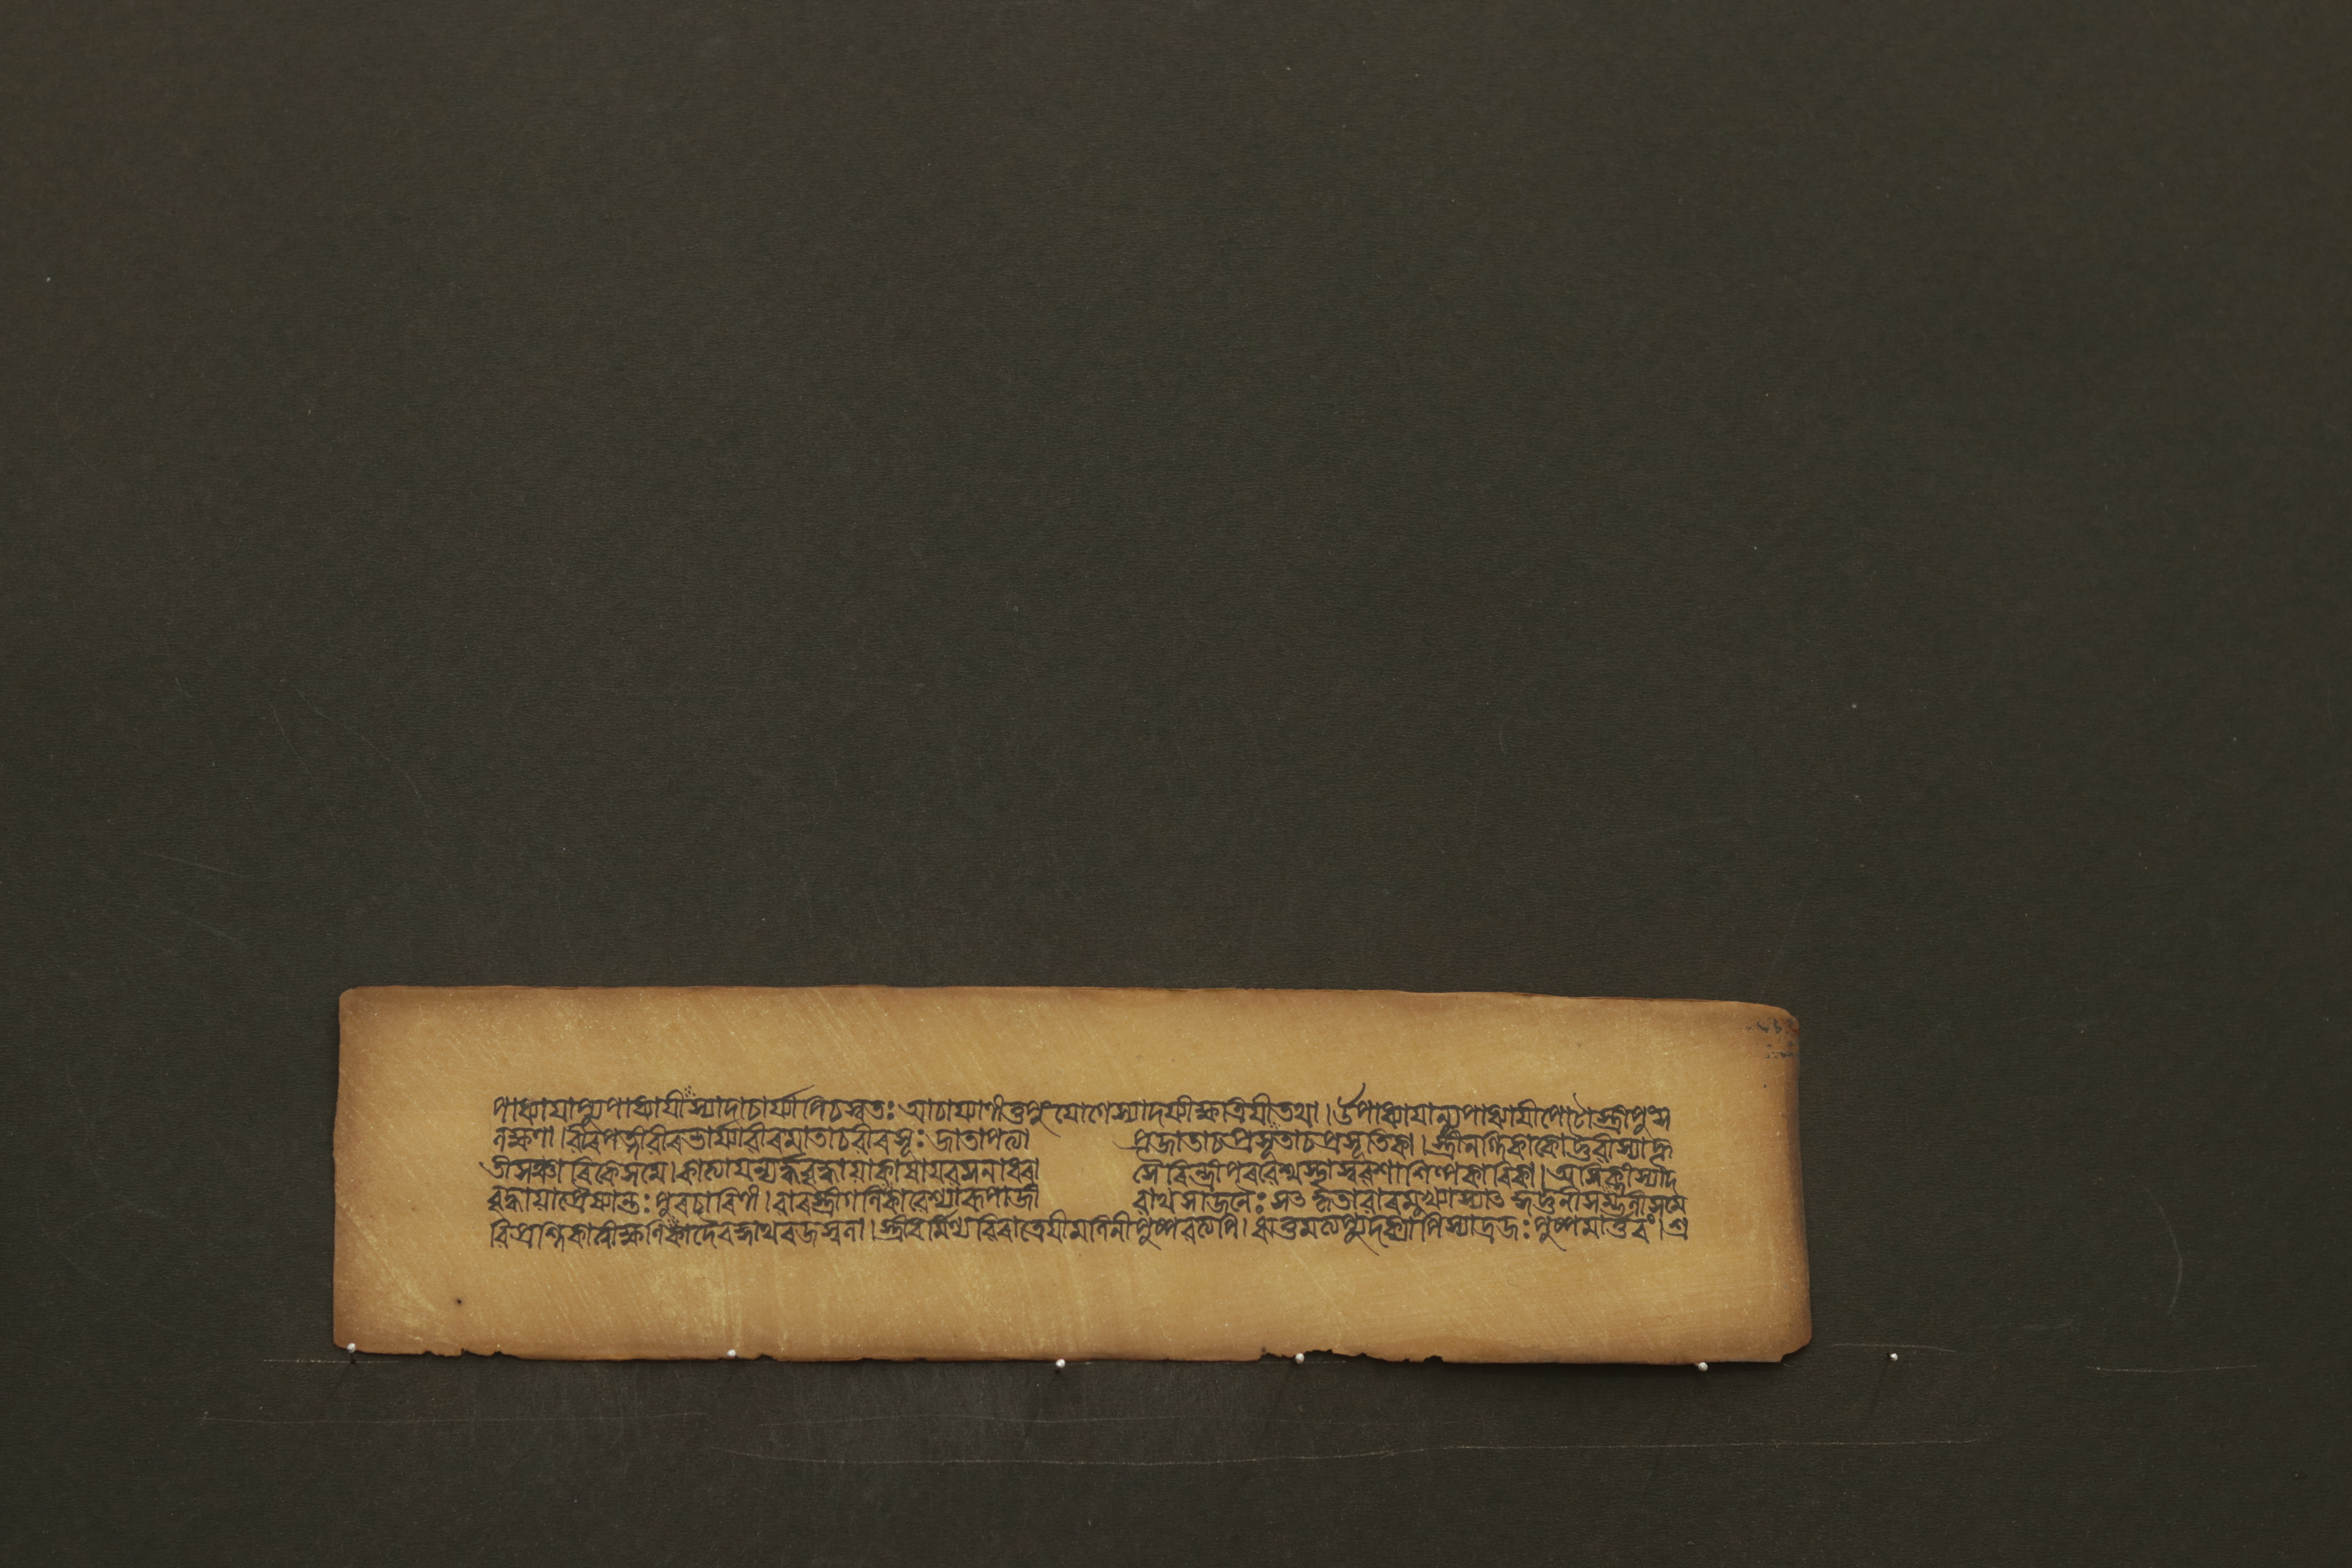 পাধ্যাযাপ্যুপাধ্যাযীস্যাদাচাৰ্য্যাপিচস্বতঃ আচাৰ্য্যাণীতুপুংযোগেস্যাদৰ্য্যীক্ষত্রিযীতথা।উপাধ্যাযান্যুপাধ্যাযীপোটাস্ত্রীপুংস
লক্ষণা।ৱীৰপত্নীৱীৰভাৰ্য্যাৱীৰমাতাচৱীৰসূঃ জাতাপত্যা প্রজাতাচপ্রসূতাচপ্রসূতিকা।স্ত্রীনগ্নিকাকোট্টৱীস্যাদ্দূ
তীসঞ্চাৰিকেসমে।কাত্যাযন্যৰ্দ্ধৱৃদ্ধাযাকাষাযৱসনাধৱা সৈৰিন্ধ্রীপৰৱেশ্মস্থাস্বৱশাশিল্পকাৰিকা।অসিক্নীস্যাদ
ৱৃদ্ধাযাপ্রেষ্যান্তঃপুৰচাৰিণী।ৱাৰস্ত্রীগণিকাৱেশ্যাৰূপাজী ৱাথসাজনৈঃ সৎকৃতাৱাৰমুখ্যাস্যাৎকুট্টনীসম্ভলীসমে
ৱিপ্রশ্নিকাত্বীক্ষণিকাদৈৱজ্ঞাথৰজস্বলা।স্ত্রীধৰ্ম্মিণ্যৱিৰাত্রেযীমলিনীপুষ্পৱত্যপি।ঋতুমত্যপ্যুদক্যাপিস্যাদ্রজঃপুষ্পমাৰ্ত্তৱং।শ্র